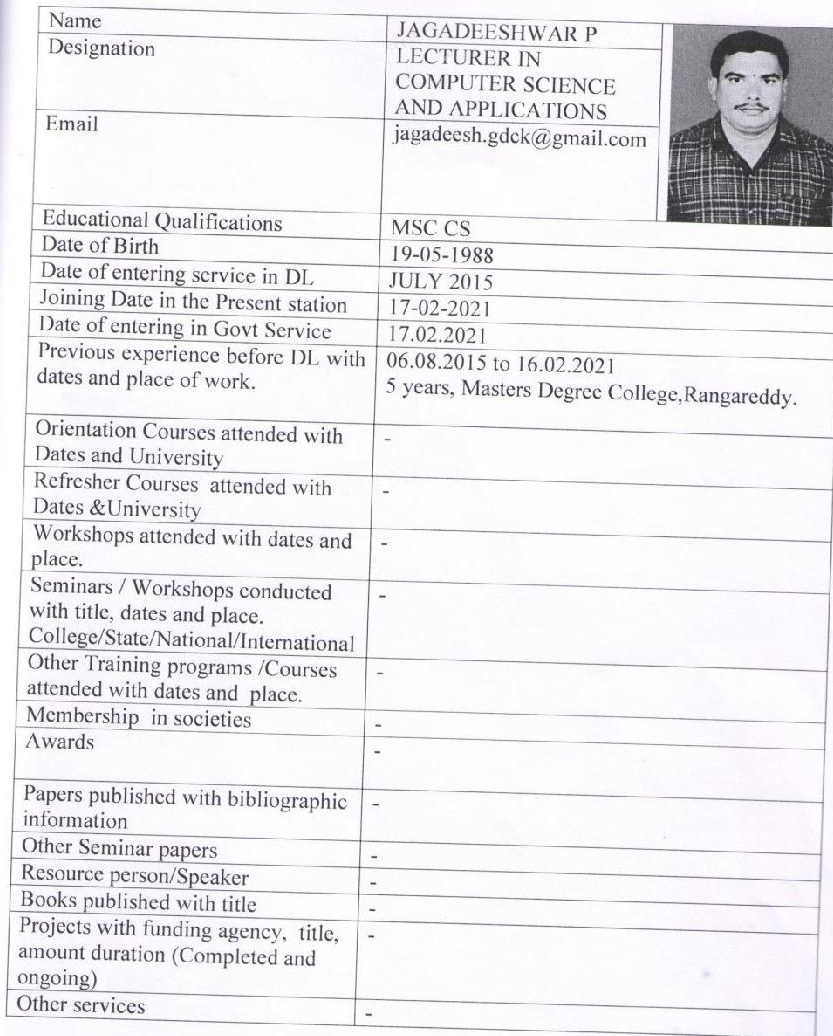 Name
JAGADEESHWAR P
Designation
LECTURER IN
COMPUTER SCIENCE
AND APPLICATIONS
Email
jagadeesh.gdck@gmail.com
Educational Qualifications
MSC CS
Date of Birth
19-05-1988
Date of entering service in DL
JULY 2015
Joining Date in the Present station
17-02-2021
Date of entering in Govt Service
17.02.2021
Previous experience before DL with
dates and place of work.
06.08.2015 to 16.02.2021
5 years, Masters Degree College,Rangareddy.
Orientation Courses attended with
Dates and University
-
Refresher Courses attended with
Dates &University
-
Workshops attended with dates and
place.
-
Seminars / Workshops conducted
with title, dates and place.
College/State/National/International
-
Other Training programs /Courses
attended with dates and place.
-
Membership in societies
-
Awards
-
Papers published with bibliographic
information
-
Other Seminar papers
-
Resource person/Speaker
-
Books published with title
-
Projects with funding agency, title,
amount duration (Completed and
ongoing)
-
Other services
-